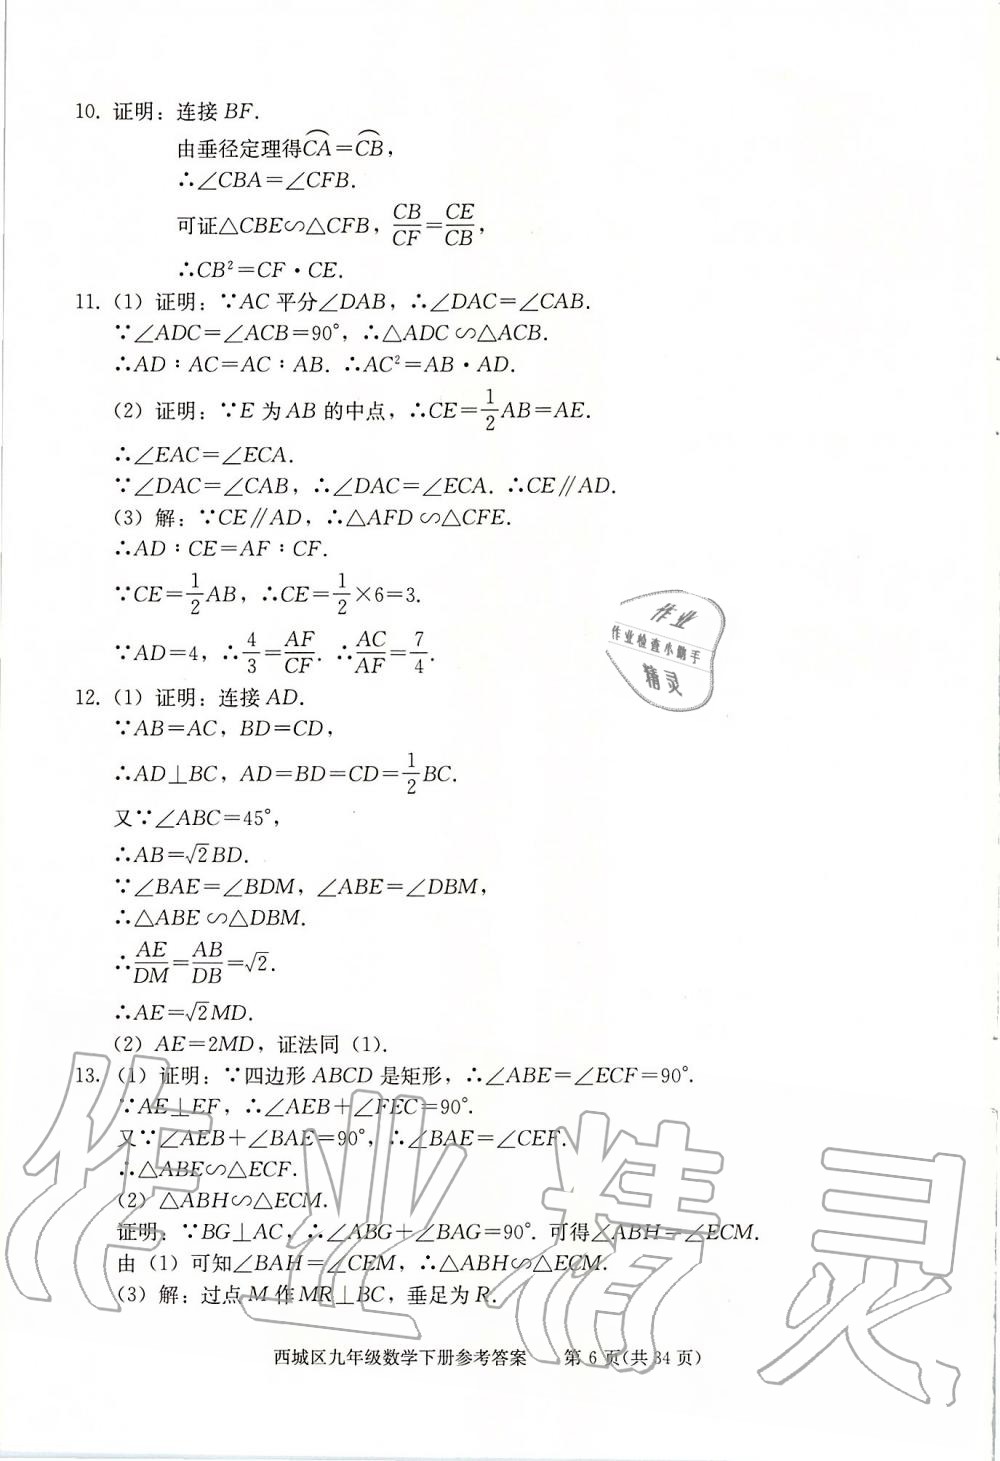 10. 证明：连接 BF.
由垂径定理得⌒CA=⌒CB，
∴∠CBA=∠CFB.
可证△CBE∽△CFB，CB/CF=CE/CB，
∴CB²=CF·CE.
11.（1）证明：∵AC 平分∠DAB，∴∠DAC=∠CAB.
∵∠ADC=∠ACB=90°，∴△ADC∽△ACB.
∴AD∶AC=AC∶AB. ∴AC²=AB·AD.
（2）证明：∵E 为 AB 的中点，∴CE=1/2AB=AE.
∴∠EAC=∠ECA.
∵∠DAC=∠CAB，∴∠DAC=∠ECA. ∴CE∥AD.
（3）解：∵CE∥AD，∴△AFD∽△CFE.
∴AD∶CE=AF∶CF.
∵CE=1/2AB，∴CE=1/2×6=3.
∵AD=4，∴4/3=AF/CF. ∴AC/AF=7/4.
作业
作业检查小助手
精灵
12.（1）证明：连接 AD.
∵AB=AC，BD=CD，
∴AD⊥BC，AD=BD=CD=1/2BC.
又∵∠ABC=45°，
∴AB=√2BD.
∵∠BAE=∠BDM，∠ABE=∠DBM，
∴△ABE∽△DBM.
∴AE/DM=AB/DB=√2.
∴AE=√2MD.
（2）AE=2MD，证法同（1）.
13.（1）证明：∵四边形 ABCD 是矩形，∴∠ABE=∠ECF=90°.
∵AE⊥EF，∴∠AEB+∠FEC=90°.
又∵∠AEB+∠BAE=90°，∴∠BAE=∠CEF.
∴△ABE∽△ECF.
（2）△ABH∽△ECM.
证明：∵BG⊥AC，∴∠ABG+∠BAG=90°. 可得∠ABH=∠ECM.
由（1）可知∠BAH=∠CEM，∴△ABH∽△ECM.
（3）解：过点 M 作 MR⊥BC，垂足为 R.
作业精灵
西城区九年级数学下册参考答案 第 6 页(共 34 页)